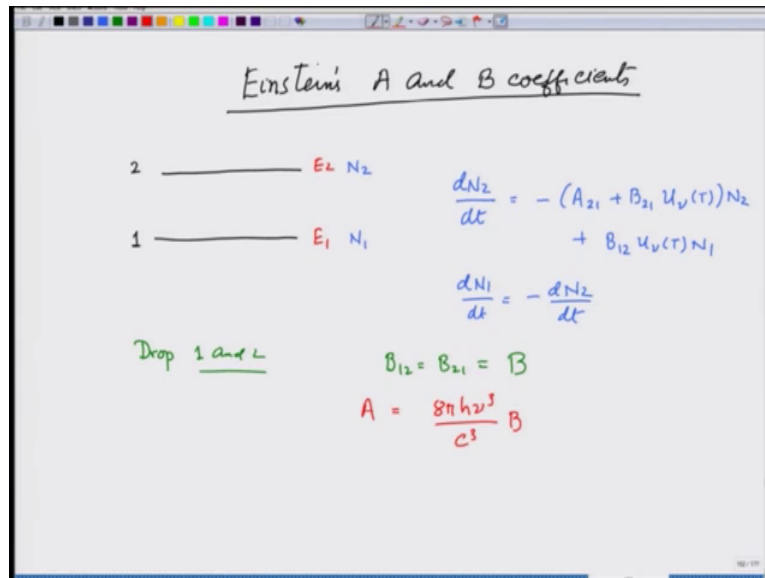 Einstein's A and B coefficients
2 E2 N2
1 E1 N1
dN2/dt = - (A21 + B21 Uν(T)) N2
+ B12 Uν(T) N1
dN1/dt = - dN2/dt
Drop 1 and 2
B12 = B21 = B
A = 8πhν³/c³ B